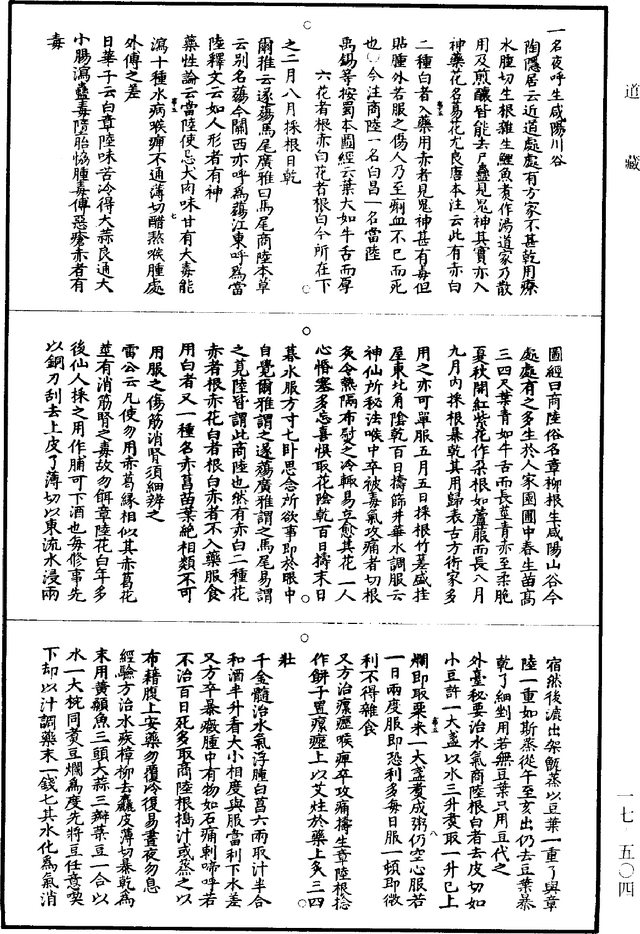 道藏
一名夜呼生咸陽川谷
陶隱居云近道處處有方家不甚乾用療
水腫切生根雜生鯉魚煮作湯道家乃散
用及煎釀皆能去尸蟲見鬼神其實亦入
神藥花名葛花尤良唐本注云此有赤白
二種白者入藥用赤者見鬼神甚有毒但
貼腫外若服之傷人乃至痢血不已而死
也今注商陸一名白昌一名當陸
禹錫等按蜀本圖經云葉大如牛舌而厚
脆有赤花者根赤白花者根白今所在下
之二月八月採根日乾
爾雅云蓫薚馬尾廣雅曰馬尾商陸本草
云別名薚今關西亦呼為薚江東呼為當
陸釋文云如人形者有神
藥性論云當陸使忌犬肉味甘有大毒能
瀉十種水病喉痺不通薄切醋熬喉腫處
外傅之差
日華子云白章陸味苦冷得大蒜良通大
小腸瀉蠱毒墮胎㷌腫毒傅惡瘡赤者有
毒
圖經曰商陸俗名章柳根生咸陽山谷今
處處有之多生於人家園圃中春生苗高
三四尺葉青如牛舌而長莖青赤至柔脆
夏秋開紅紫花作朵根如蘆菔而長八月
九月內採根暴乾其用歸表古方術家多
用之亦可單服五月五日採根竹篋盛挂
屋東北角陰乾百日擣篩井華水調服云
神仙所秘法喉中卒被毒氣攻痛者切根
炙令熱隔布熨之冷輒易立愈其花一人
心惛塞多忘喜悞取花陰乾百日擣末日
暮水服方寸匕卧思念所欲事即於眼中
自覺爾雅謂之蓫薚廣雅謂之馬尾易謂
之莧陸皆謂此商陸也然有赤白二種花
赤者根赤花白者根白赤者不入藥服食
用白者又一種名赤莒苗葉絕相類不可
用服之傷筋消腎須細辨之
雷公云凡使勿用赤葛緣相似其赤葛花
莖有消筋腎之毒故勿餌章陸花白年多
後仙人採之用作脯可下酒也每修事先
以銅刀刮去上皮了薄切以東流水浸兩
宿然後漉出架甑蒸以豆葉一重了與章
陸一重如斯蒸從午至亥出仍去豆葉暴
乾了細剉用若無豆葉只用豆代之
外臺秘要治水氣商陸根白者去皮切如
小豆許一大盞以水三升煮取一升已上
爛即取粟米一大盞煮成粥仍空心服若
一日兩度服即恐利多每日服一頓即微
利不得雜食
又方治瘰癧喉痺卒攻痛擣生章陸根捻
作餅子置瘰癧上以艾炷於藥上灸三四
壯
千金髓治水氣浮腫白莒六兩取汁半合
和酒半升看大小相度與服當利下水差
又方卒暴癥腫中有物如石痛刺啼呼若
不治百日死多取商陸根搗汁或蒸之以
布藉腹上安藥勿覆冷復易晝夜勿息
經驗方治水疾樟柳去麤皮薄切暴乾為
末用黃顙魚三頭大蒜三瓣菉豆一合以
水一大椀同煮豆爛為度先將豆任意喫
下却以汁調藥末一錢匕其水化為氣消
一七·五〇四